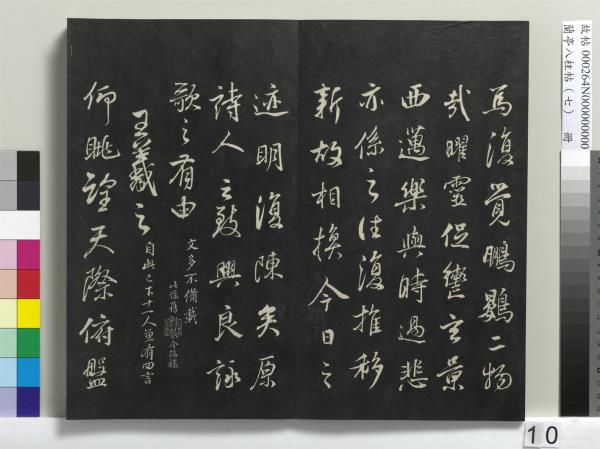 故帖 000264N000000000
蘭亭八柱帖（七） 冊
焉復覺鵬鷃二物
哉曜靈促轡玄景
西邁樂與時過悲
亦係之往復推移
新故相換今日之
迹明復陳矣原
詩人之致興良詠
歌之有由 文多不備載
王羲之 自此已下十一人並有四言
仰眺望天際俯盤
10